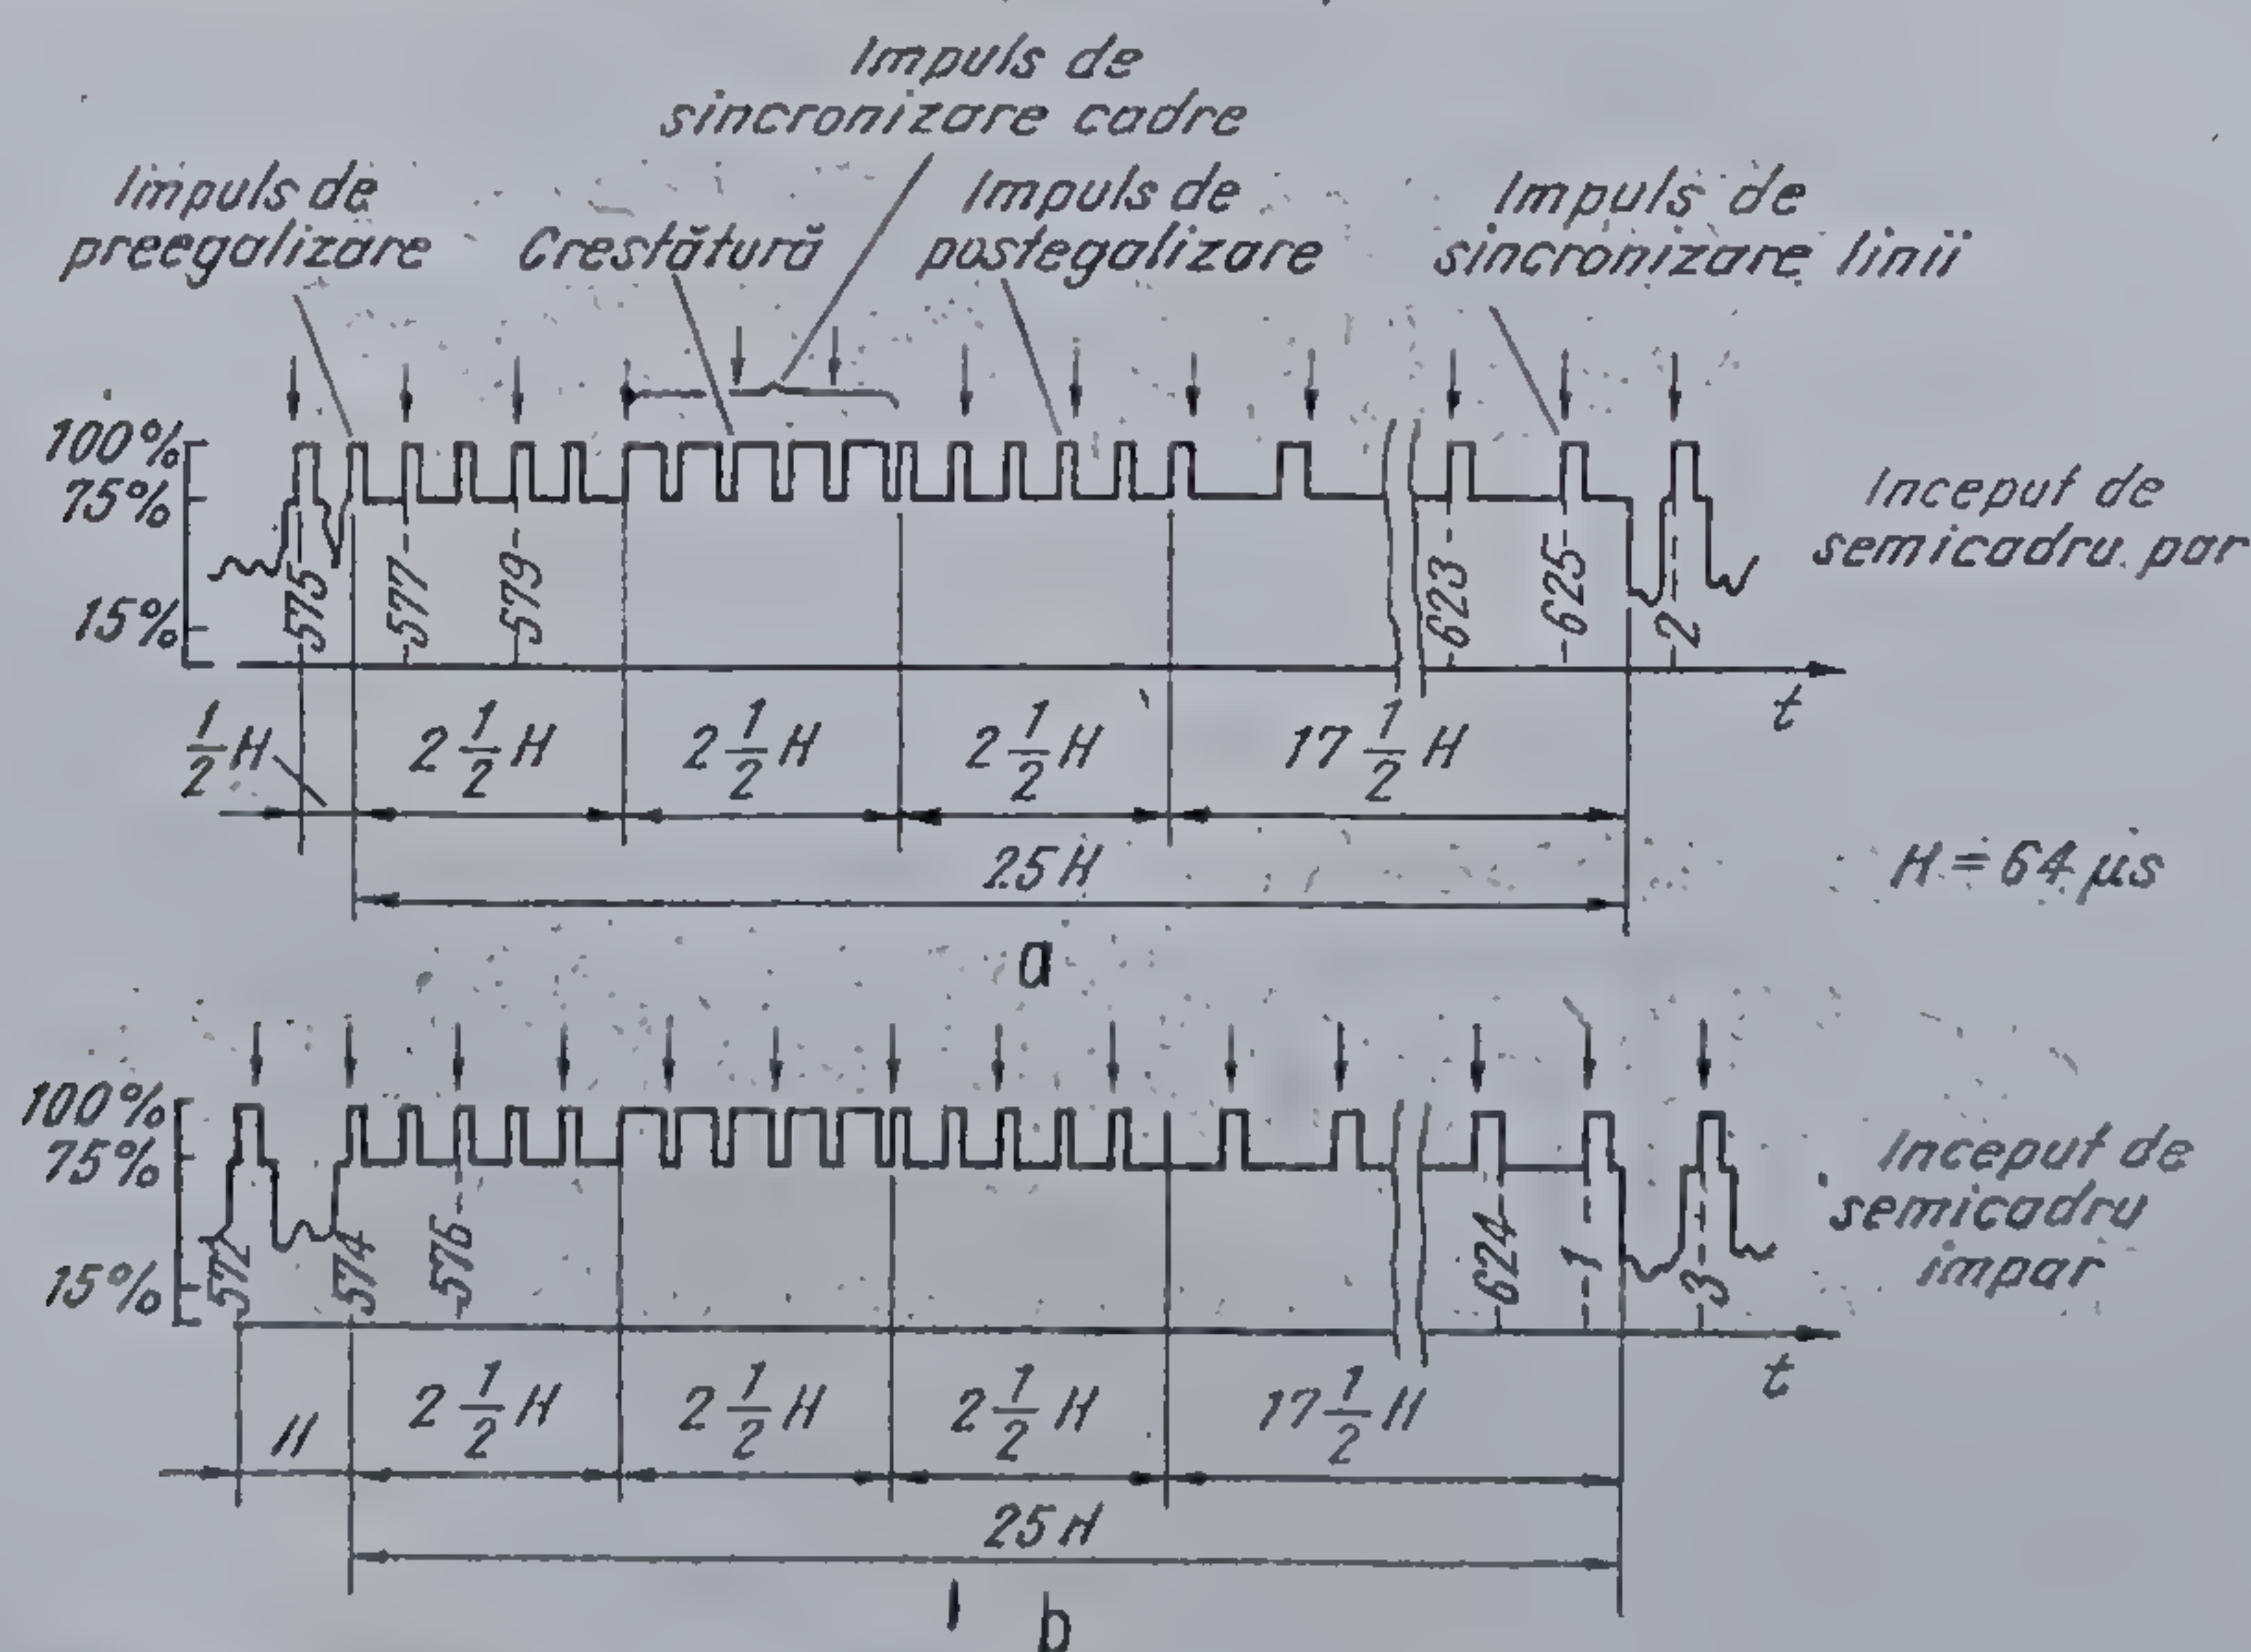 Impuls de
sincronizare cadre
Impuls de
preegalizare
Crestătură
Impuls de
postegalizare
Impuls de
sincronizare linii
100%
75%
15%
575
577
579
623
625
2
t
Inceput de
semicadru par
1/2 H
2 1/2 H
2 1/2 H
2 1/2 H
17 1/2 H
25 H
H = 64 μs
a
100%
75%
15%
572
574
576
624
1
3
t
Inceput de
semicadru
impar
H
2 1/2 H
2 1/2 H
2 1/2 H
17 1/2 H
25 H
b